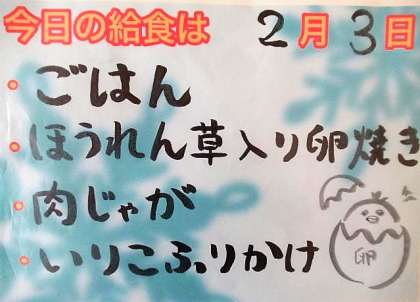 今日の給食は 2月3日
・ごはん
・ほうれん草入り卵焼き
・肉じゃが
・いりこふりかけ
卵